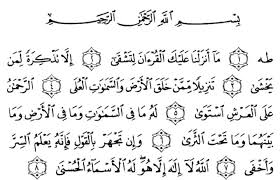 بِسْمِ اللَّهِ الرَّحْمَٰنِ الرَّحِيمِ
طه ۝١ مَا أَنزَلْنَا عَلَيْكَ الْقُرْءَانَ لِتَشْقَىٰ ۝٢ إِلَّا تَذْكِرَةً لِّمَن
يَخْشَىٰ ۝٣ تَنزِيلًا مِّمَّنْ خَلَقَ الْأَرْضَ وَالسَّمَٰوَٰتِ الْعُلَى ۝٤ الرَّحْمَٰنُ
عَلَى الْعَرْشِ اسْتَوَىٰ ۝٥ لَهُ مَا فِي السَّمَٰوَٰتِ وَمَا فِي الْأَرْضِ وَمَا
بَيْنَهُمَا وَمَا تَحْتَ الثَّرَىٰ ۝٦ وَإِن تَجْهَرْ بِالْقَوْلِ فَإِنَّهُ يَعْلَمُ السِّرَّ
وَأَخْفَى ۝٧ اللَّهُ لَا إِلَٰهَ إِلَّا هُوَ لَهُ الْأَسْمَاءُ الْحُسْنَىٰ ۝٨